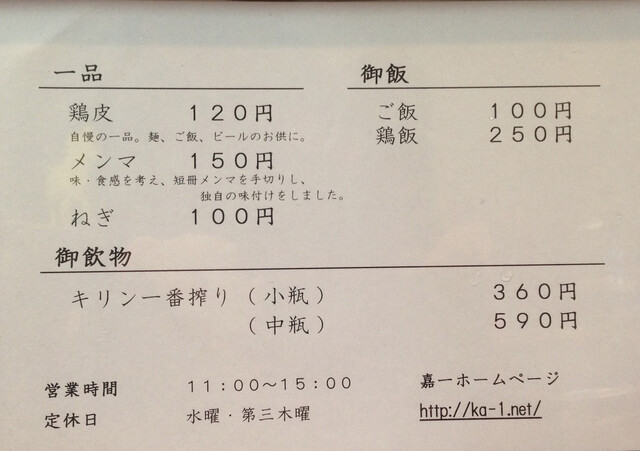 一品
鶏皮 120円
自慢の一品。麺、ご飯、ビールのお供に。
メンマ 150円
味・食感を考え、短冊メンマを手切りし、
独自の味付けをしました。
ねぎ 100円
御飯
ご飯 100円
鶏飯 250円
御飲物
キリン一番搾り (小瓶) 360円
(中瓶) 590円
営業時間 11:00～15:00
定休日 水曜・第三木曜
嘉一ホームページ
http://ka-1.net/